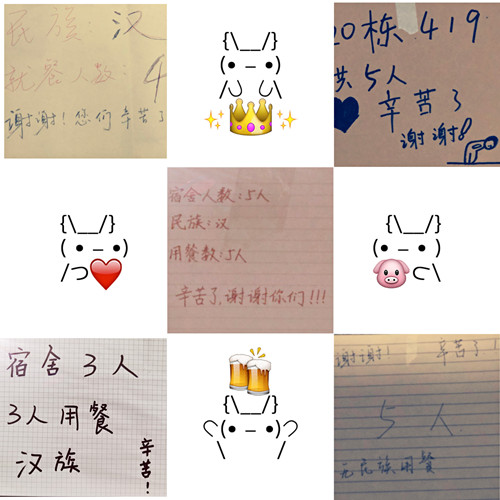 民族：汉
就餐人数：4
谢谢！您们辛苦了
{\__/}
(● – ●)
20栋419
共5人
辛苦了
谢谢！
{\__/}
(● – ●)
宿舍人数：5人
民族：汉
用餐数：5人
辛苦了,谢谢你们!!!
{\__/}
(● – ●)
宿舍3人
3人用餐
汉族
辛苦！
{\__/}
(● – ●)
谢谢！ 辛苦了！
5人
无民族用餐